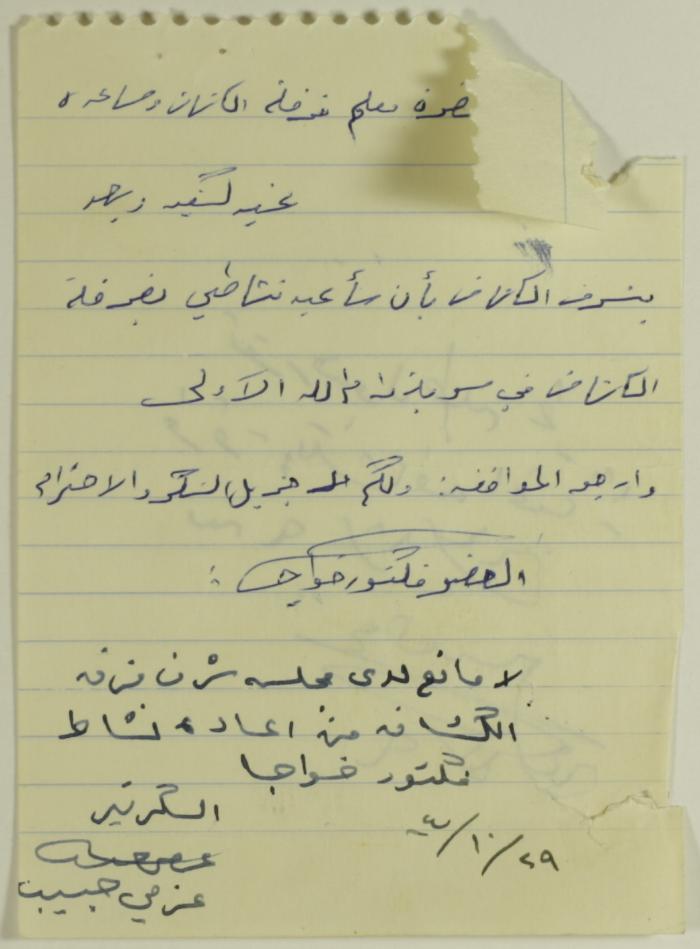 حضرة معلم فرقة الكشاف ومساعده
تحيه كشفيه وبعد
يتشرف الكشاف بأن أعيد نشاطي بفرقة
الكشاف في سرية رام الله الاولى
وارجو الموافقه: ولكم جزيل الشكر والاحترام
العضو فكتور خواجا :
لا مانع لدى مجلس شرف فرقه
الكشافه من اعادة نشاط
فكتور خواجا
السكرتير
عزمي حبيب
٢٩/١٠/